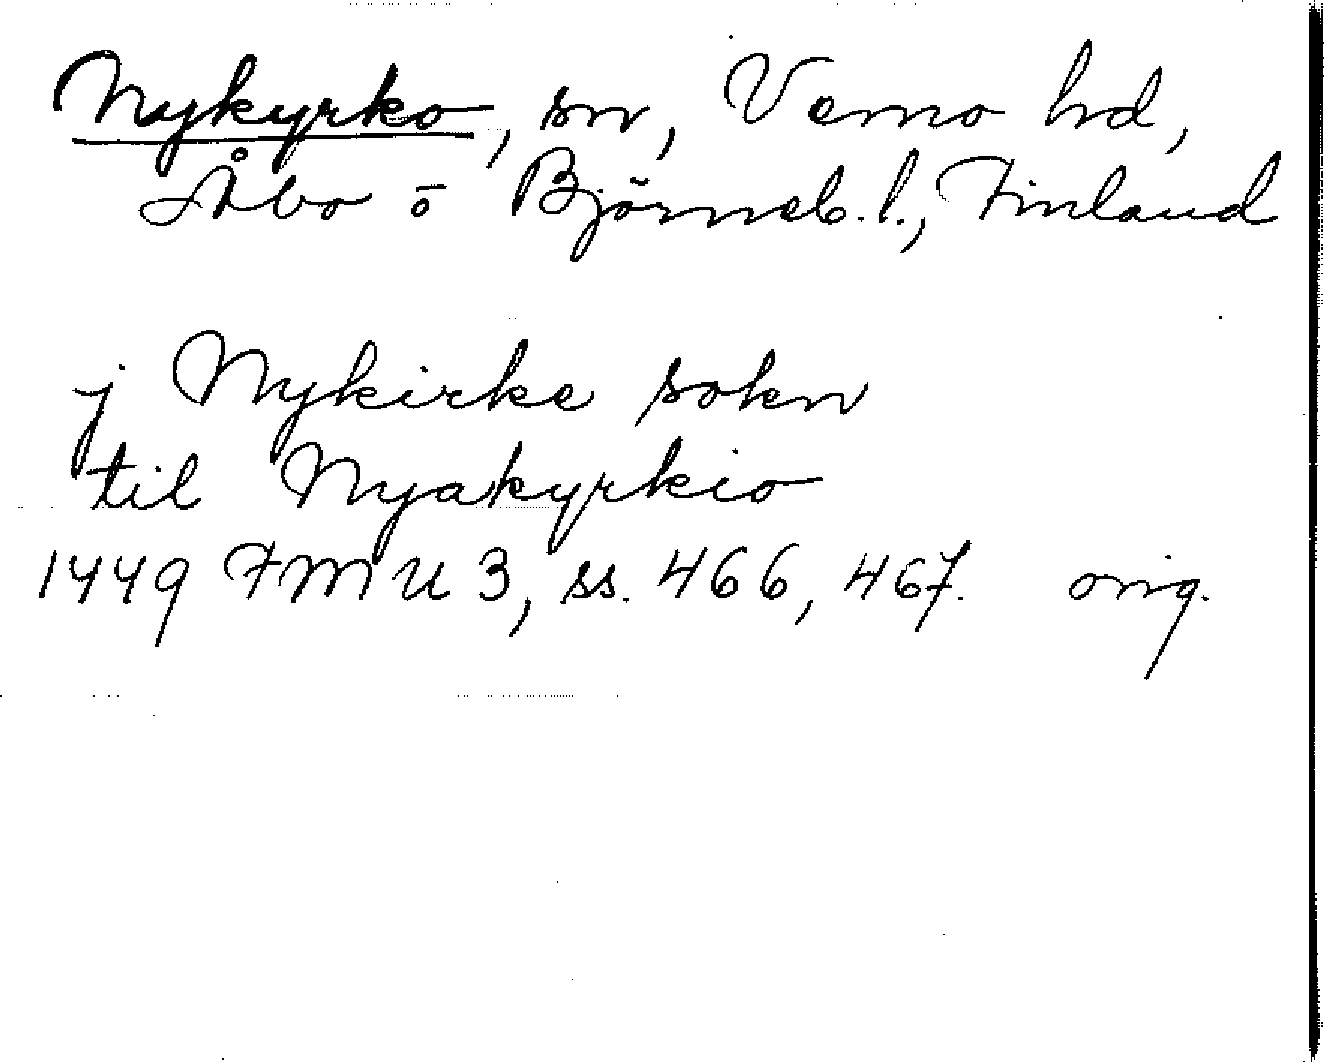 Nykyrko, sn, Vemo hd,
Åbo o Björneb. l., Finland
j Nykirke sokn
til Nyakyrkio
1449 FMU 3, ss. 466, 467. orig.